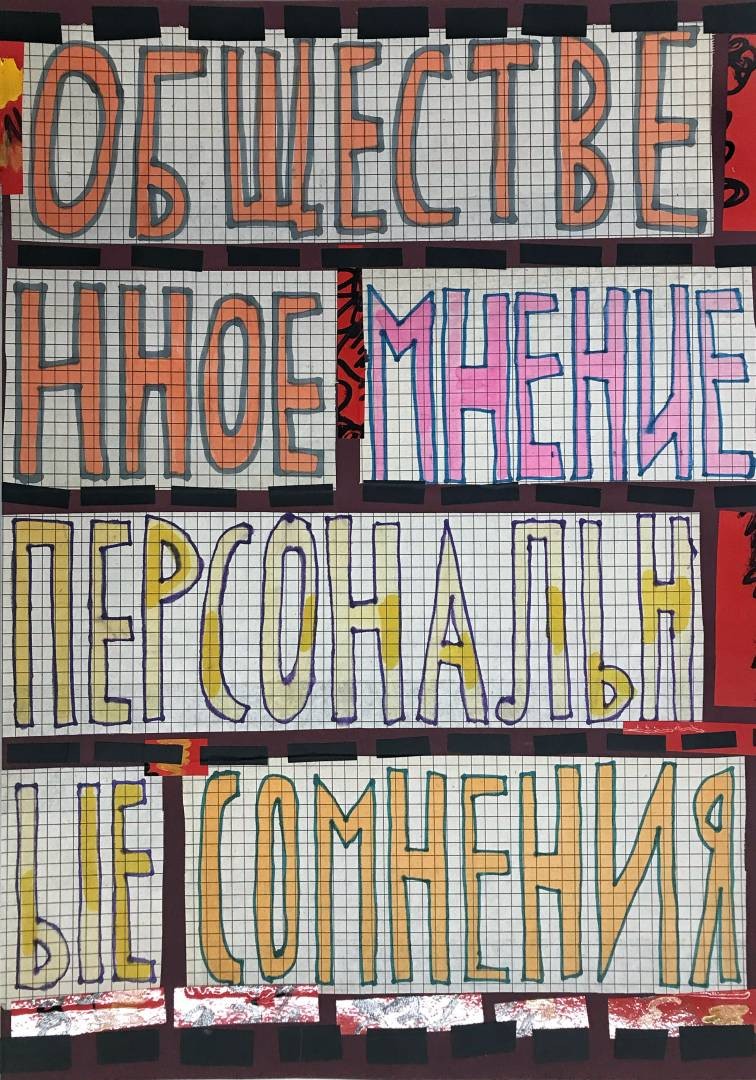 ОБЩЕСТВЕ
ННОЕ МНЕНИЕ
ПЕРСОНАЛЬН
ЫЕ СОМНЕНИЯ